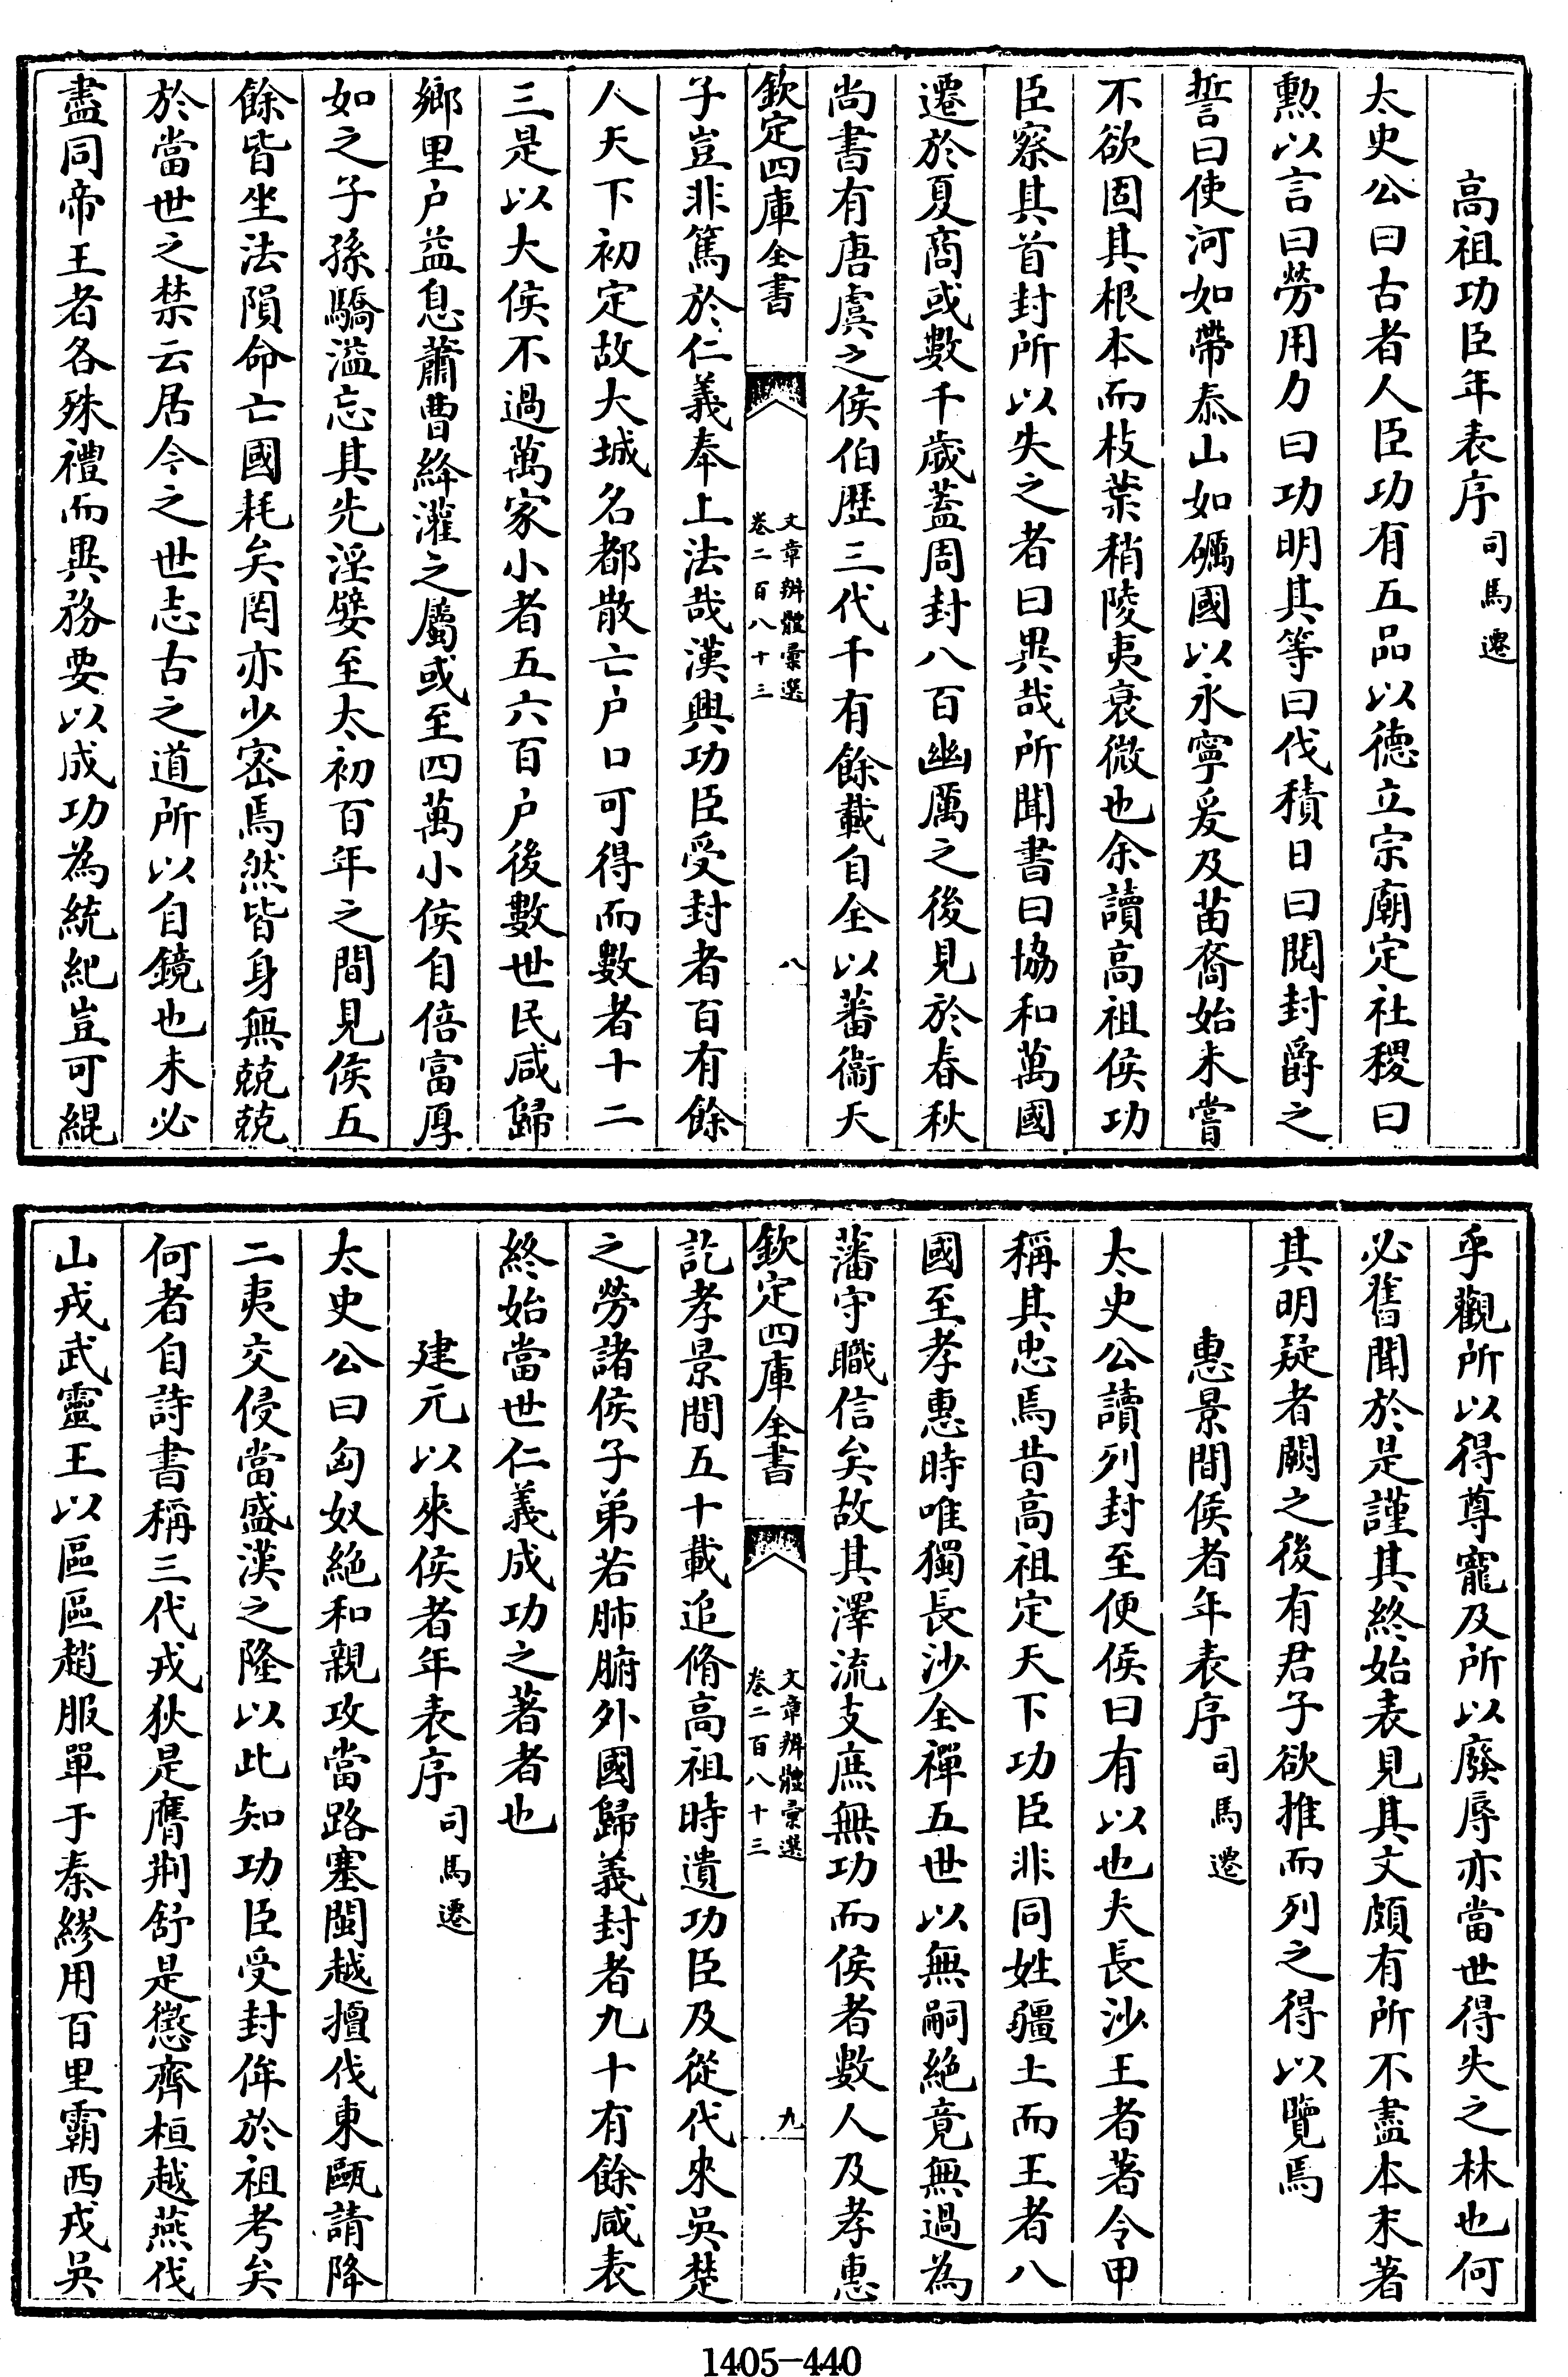 高祖功臣年表序 司馬遷
太史公曰古者人臣功有五品以德立宗廟定社稷曰
勲以言曰勞用力曰功明其等曰伐積日曰閲封爵之
誓曰使河如帶泰山如礪國以永寧爰及苗裔始未嘗
不欲固其根本而枝葉稍陵夷衰微也余讀高祖侯功
臣察其首封所以失之者曰異哉所聞書曰協和萬國
遷於夏商或數千歲蓋周封八百幽厲之後見於春秋
尚書有唐虞之侯伯歴三代千有餘載自全以蕃衞天
欽定四庫全書 文章辨體彚選 卷二百八十三 八
子豈非篤於仁義奉上法哉漢興功臣受封者百有餘
人天下初定故大城名都散亡户口可得而數者十二
三是以大侯不過萬家小者五六百户後數世民咸歸
鄉里户益息蕭曹絳灌之屬或至四萬小侯自倍富厚
如之子孫驕溢忘其先淫嬖至太初百年之間見侯五
餘皆坐法隕命亡國耗矣罔亦少密焉然皆身無兢兢
於當世之禁云居今之世志古之道所以自鏡也未必
盡同帝王者各殊禮而異務要以成功為統紀豈可緄
乎觀所以得尊寵及所以廢辱亦當世得失之林也何
必舊聞於是謹其終始表見其文頗有所不盡本末著
其明疑者闕之後有君子欲推而列之得以覽焉
惠景間侯者年表序 司馬遷
太史公讀列封至便侯曰有以也夫長沙王者著令甲
稱其忠焉昔高祖定天下功臣非同姓疆土而王者八
國至孝惠時唯獨長沙全禪五世以無嗣絶竟無過為
藩守職信矣故其澤流支庶無功而侯者數人及孝惠
欽定四庫全書 文章辨體彚選 卷二百八十三 九
訖孝景間五十載追脩高祖時遺功臣及從代來吳楚
之勞諸侯子弟若肺腑外國歸義封者九十有餘咸表
終始當世仁義成功之著者也
建元以來侯者年表序 司馬遷
太史公曰匈奴絶和親攻當路塞閩越擅伐東甌請降
二夷交侵當盛漢之隆以此知功臣受封侔於祖考矣
何者自詩書稱三代戎狄是膺荆舒是懲齊桓越燕伐
山戎武靈王以區區趙服單于秦繆用百里霸西戎吳
1405—440